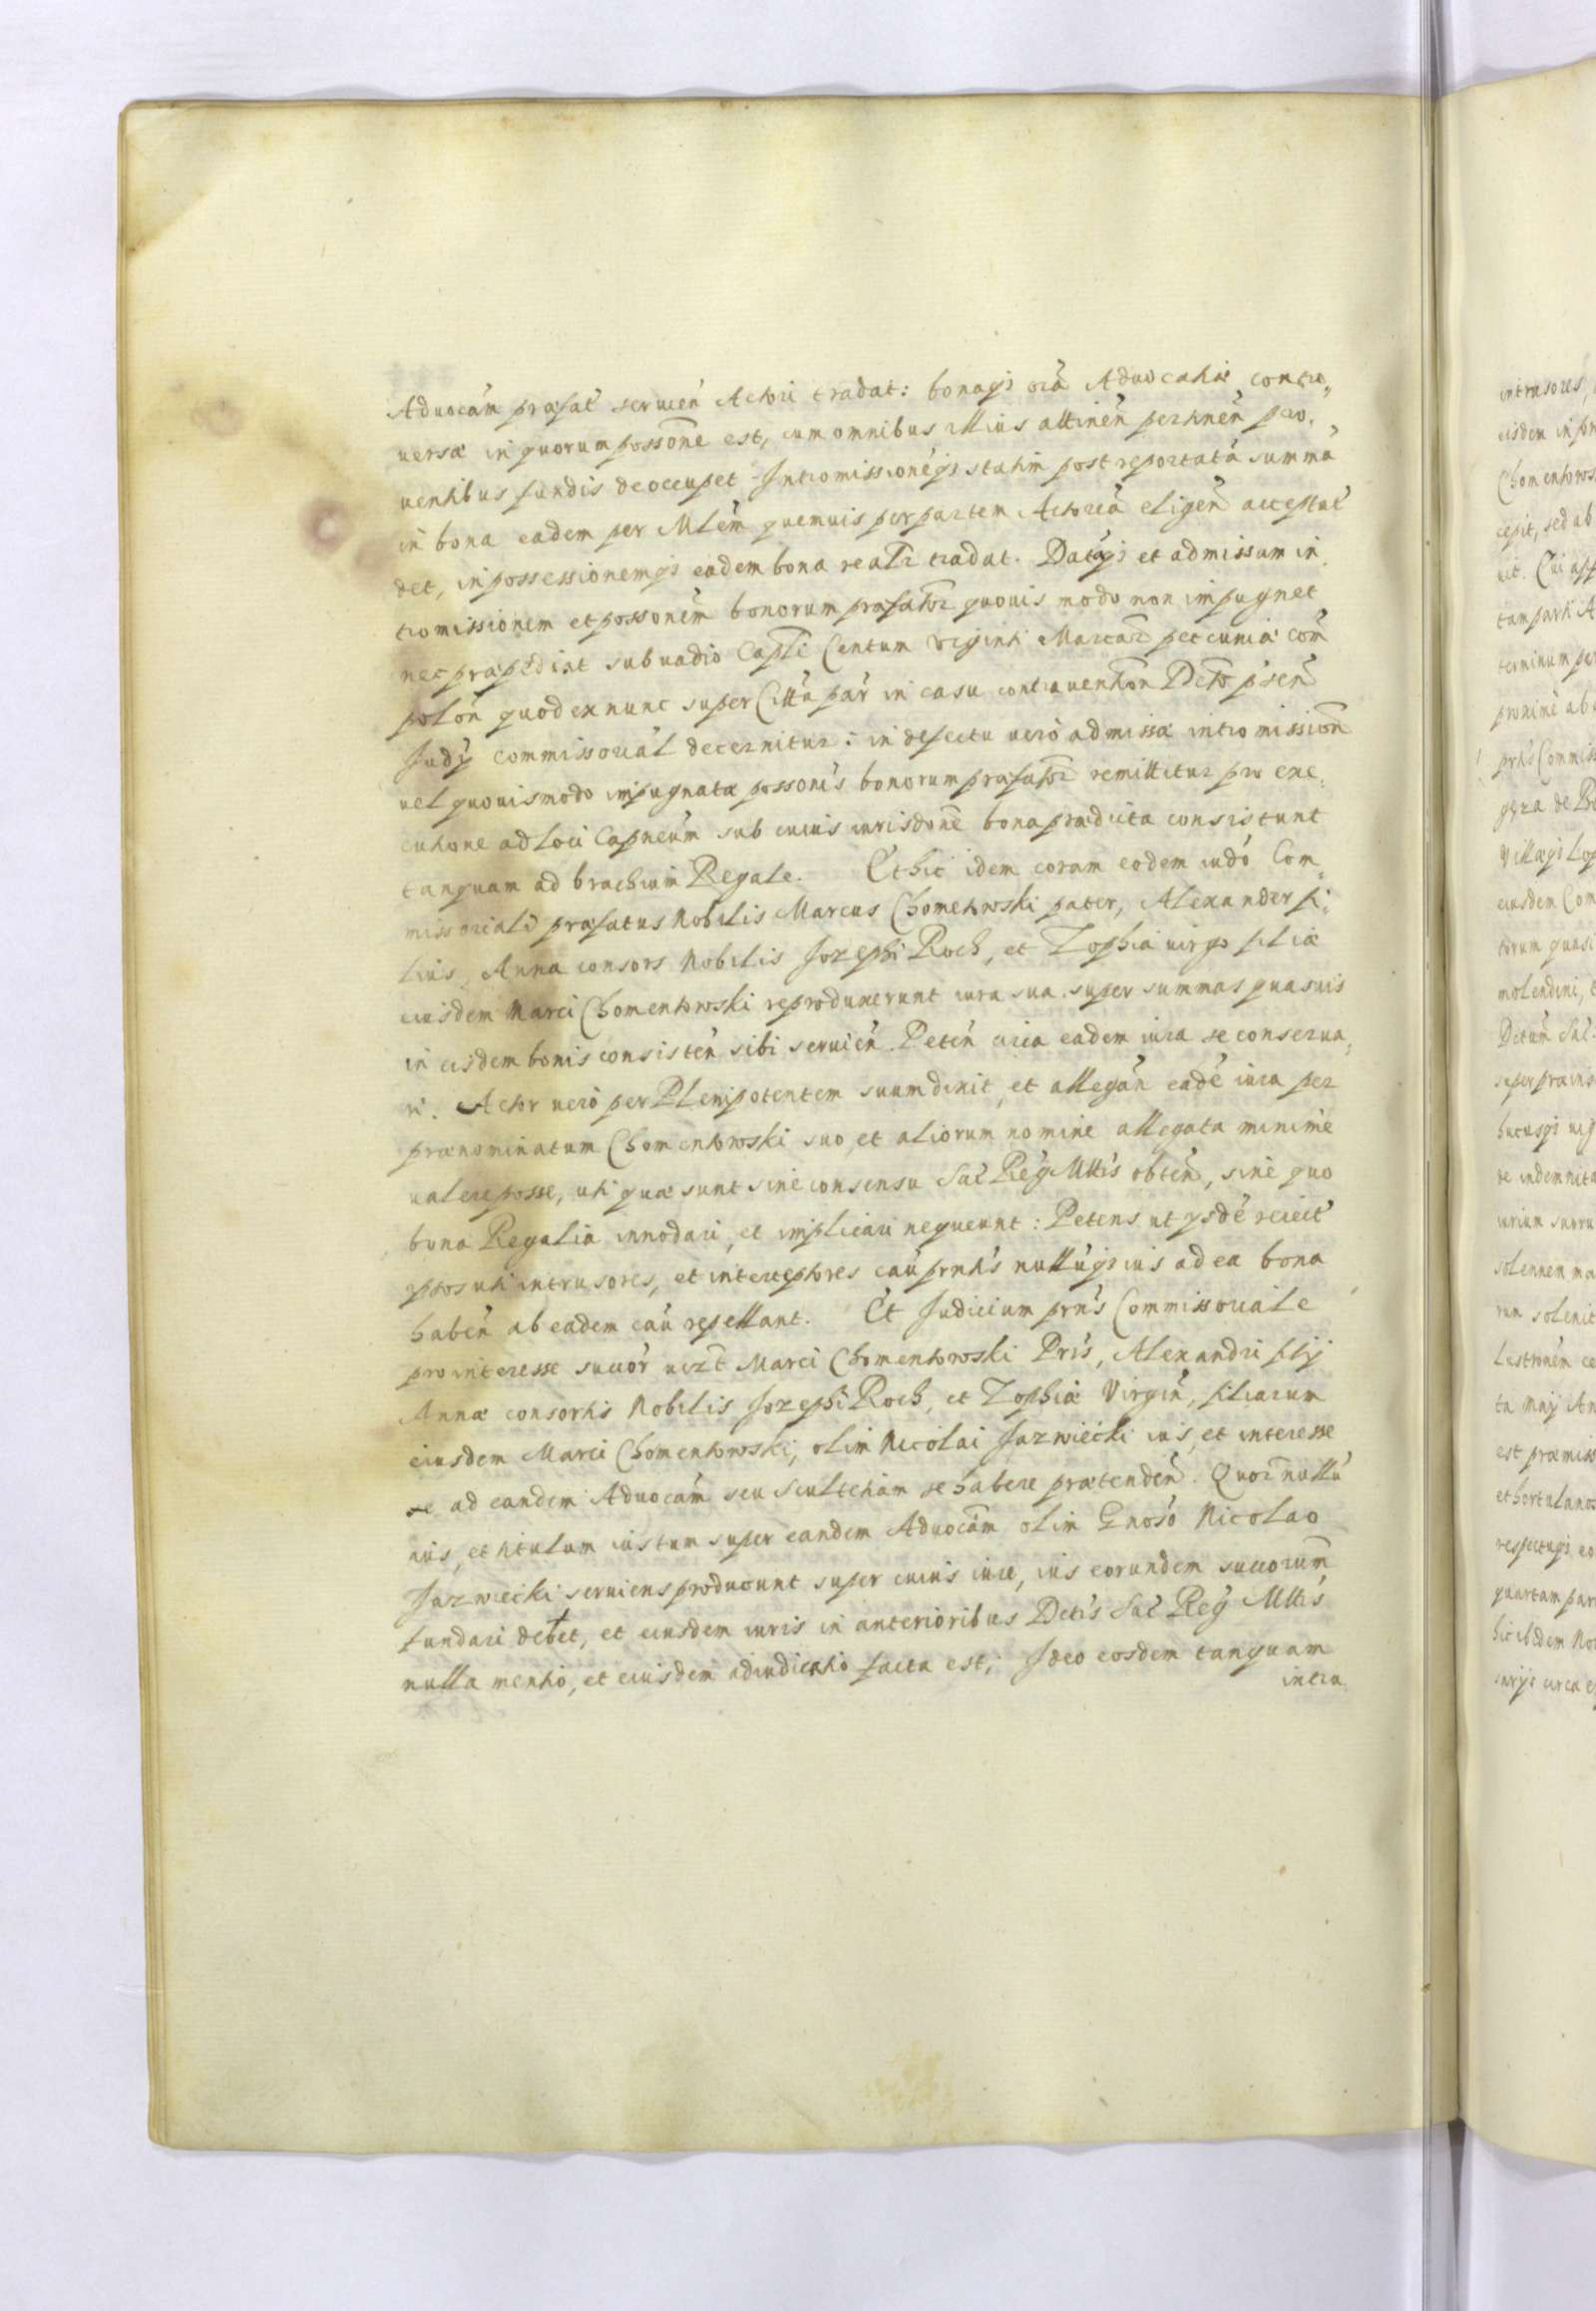 Aduocām præfat̄ seruień Actori tradat: bonaq₃ oīa Aduocatiæ contro„
uersæ in quorum possōne est, cum omnibus illius attineń pertineń pro„
uentibus fundis deoccupet Intromissionēq₃ statim post reportatā summā
in bona eadem per Mtēm quemuis per partem Actoreā eligeń acceptet
det, in possessionemq₃ eadem bona realr tradat. Datāq₃ et admissam in
tromissionem et possonēm bonorum præfator quouis modo non impugnet
nec præpediat sub vadio Caplī Centum viginti Marcar pecuniæ com̄
polon̄ quod ex nunc super Cittā par in casu contrauention Dcto p̄sen̄
Judÿ commissorial decernitur: in defectu uerò admissæ intromission̄
uel quouismodo impugnatæ possonis bonorum præfator remittitur pro exe„
cutione ad loci Capneūm sub cuius iurisdōne bona prædicta consistunt
tanquam ad brachium Regale. Et hic idem coram eodem iudō Com„
missoriali præfatus Nobilis Marcus Chomentowski pater, Alexander fi„
lius, Anna consors Nobilis Jozephi Roch, et Zophia uirgo filiæ
eiusdem Marci Chomentowski reproduxerunt iura sua super summas quasuis
in eisdem bonis consisteń sibi seruień. Peteń circa eadem iura se conserua„
ri. Actor uerò per Plenipotentem suum dixit, et allegań eadē iura per
prænominatum Chomentowski suo, et aliorum nomine allegata minimè
ualere posse, uti quæ sunt sine consensu Sac Reg Mttis obteń, sine quo
bona Regalia innodari, et implicari nequeunt: Petens ut ysdē reieit
ipsos uti intrusores, et interceptores caū prntis nullūq₃ ius ad ea bona
habeń ab eadem caū repellant. Et Judicium prns Commissoriale
pro interesse succor uizt Marci Chomentowski Pris, Alexandri filÿ
Annæ consortis Nobilis Jozephi Roch, et Zophiæ Virgin̄, filiarum
eiusdem Marci Chomentowski, olim Nicolai Jazwiecki ius, et interesse
se ad eandem Aduocām seu Scultetiam se habere prætendeń. Quor nullū
ius, et titulum iustum super eandem Aduocām olim Gnoso Nicolao
Jazwiecki seruiens producunt super cuius iure, ius eorundem succorum̄
fundari debet, et eiusdem iuris in anterioribus Dctis Sac Reg Mttis
nulla mentio, et eiusdem adiudicatio facta est, Ideo eosdem tanquam
intru„